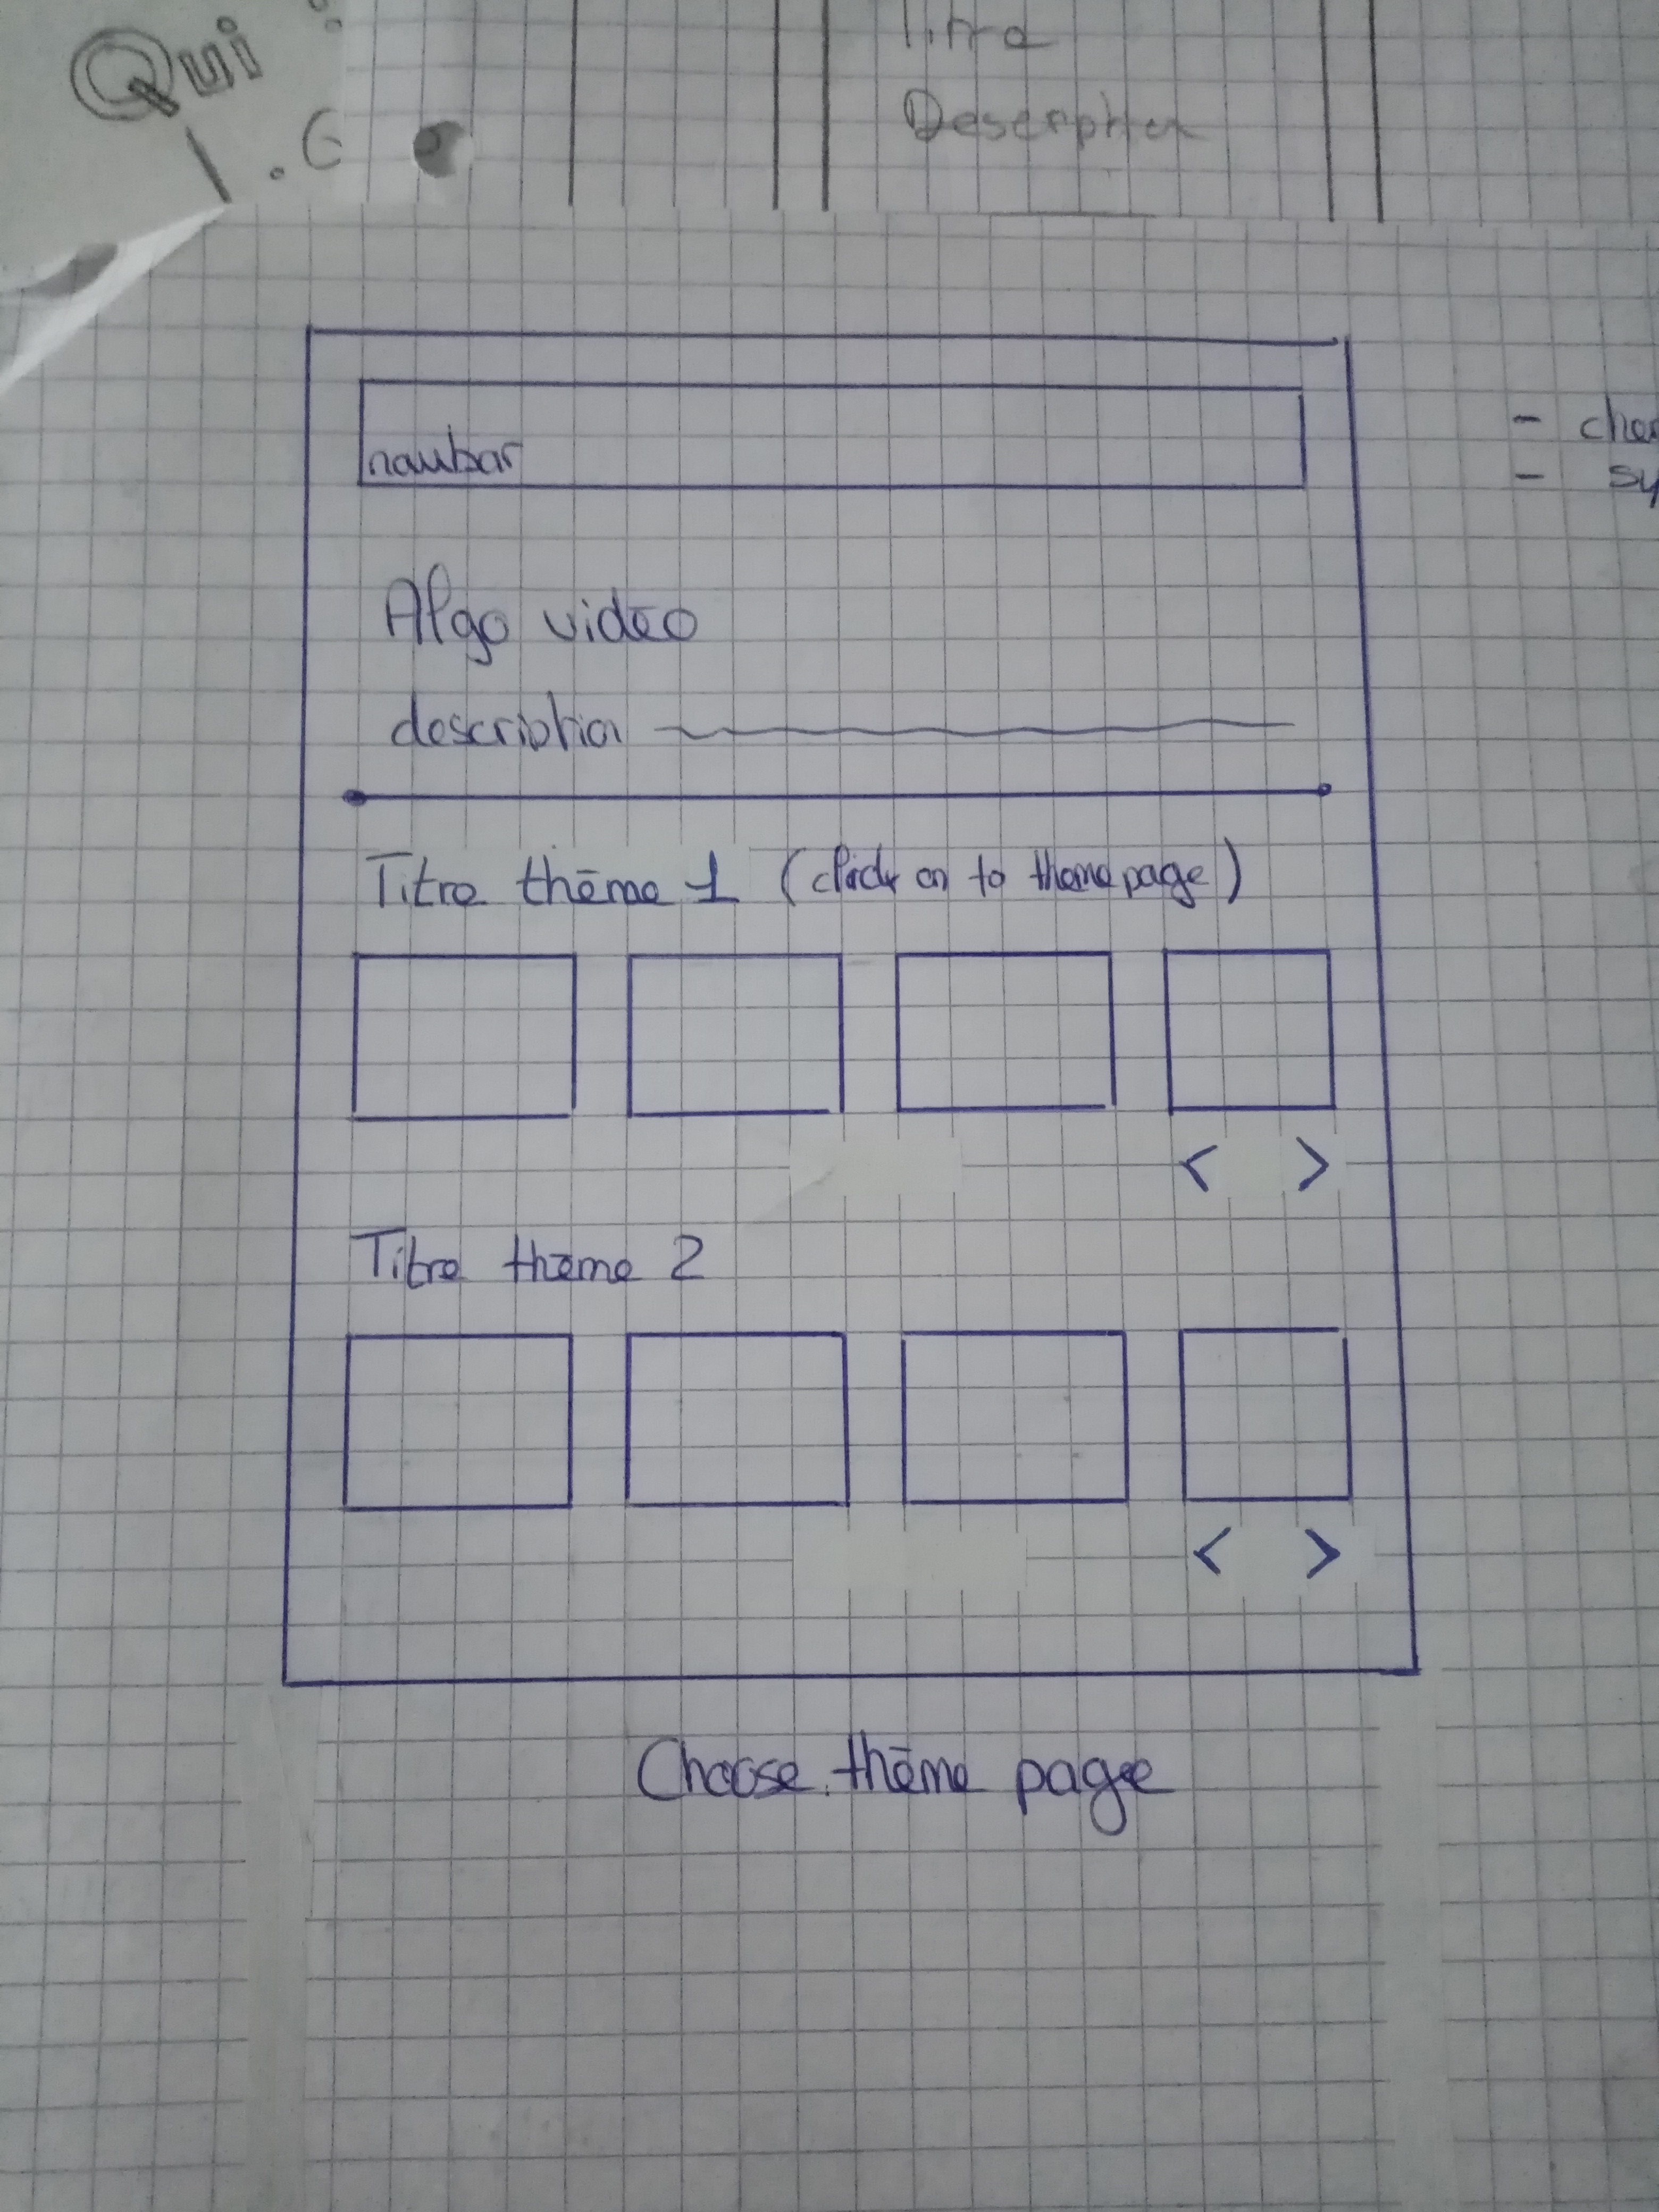 Qui :
1.
Titre
Description
- 
- 
navbar
Algo vidéo
description
Titre thème 1 (click on to theme page)
< >
Titre thème 2
< >
Choose thème page